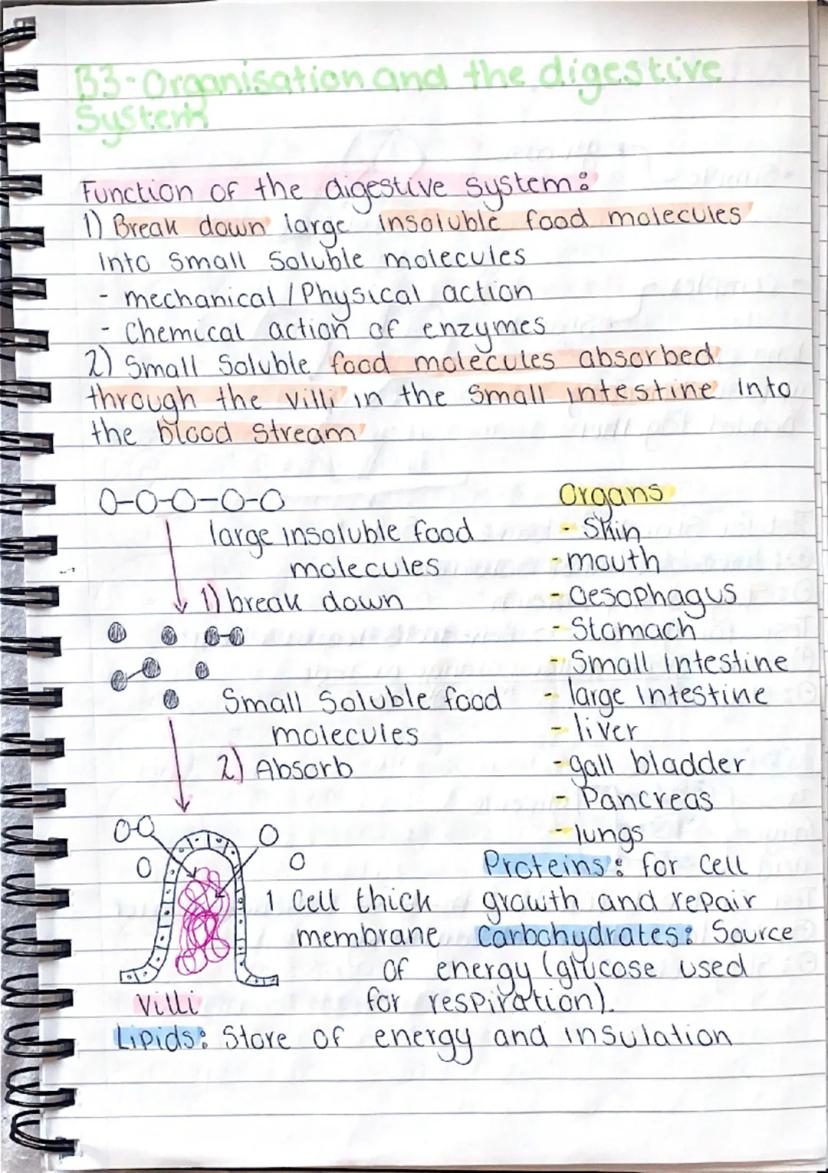 B3-Organisation and the digestive
System
Function of the digestive system:
1) Break down large insoluble food molecules
into small soluble molecules
- mechanical/Physical action
- Chemical action of enzymes
2) Small Soluble food molecules absorbed
through the villi in the small intestine into
the blood stream
large insoluble food
molecules
1) break down
Small Soluble food
molecules
2) Absorb
Organs
- Skin
- mouth
- oesophagus
- Stomach
- Small intestine
- large intestine
- liver
- gall bladder
- Pancreas
- lungs
1 Cell thick
membrane
Villi
Proteins: for cell
growth and repair
Carbohydrates: Source
of energy (glucose used
for respiration).
Lipids: Store of energy and insulation